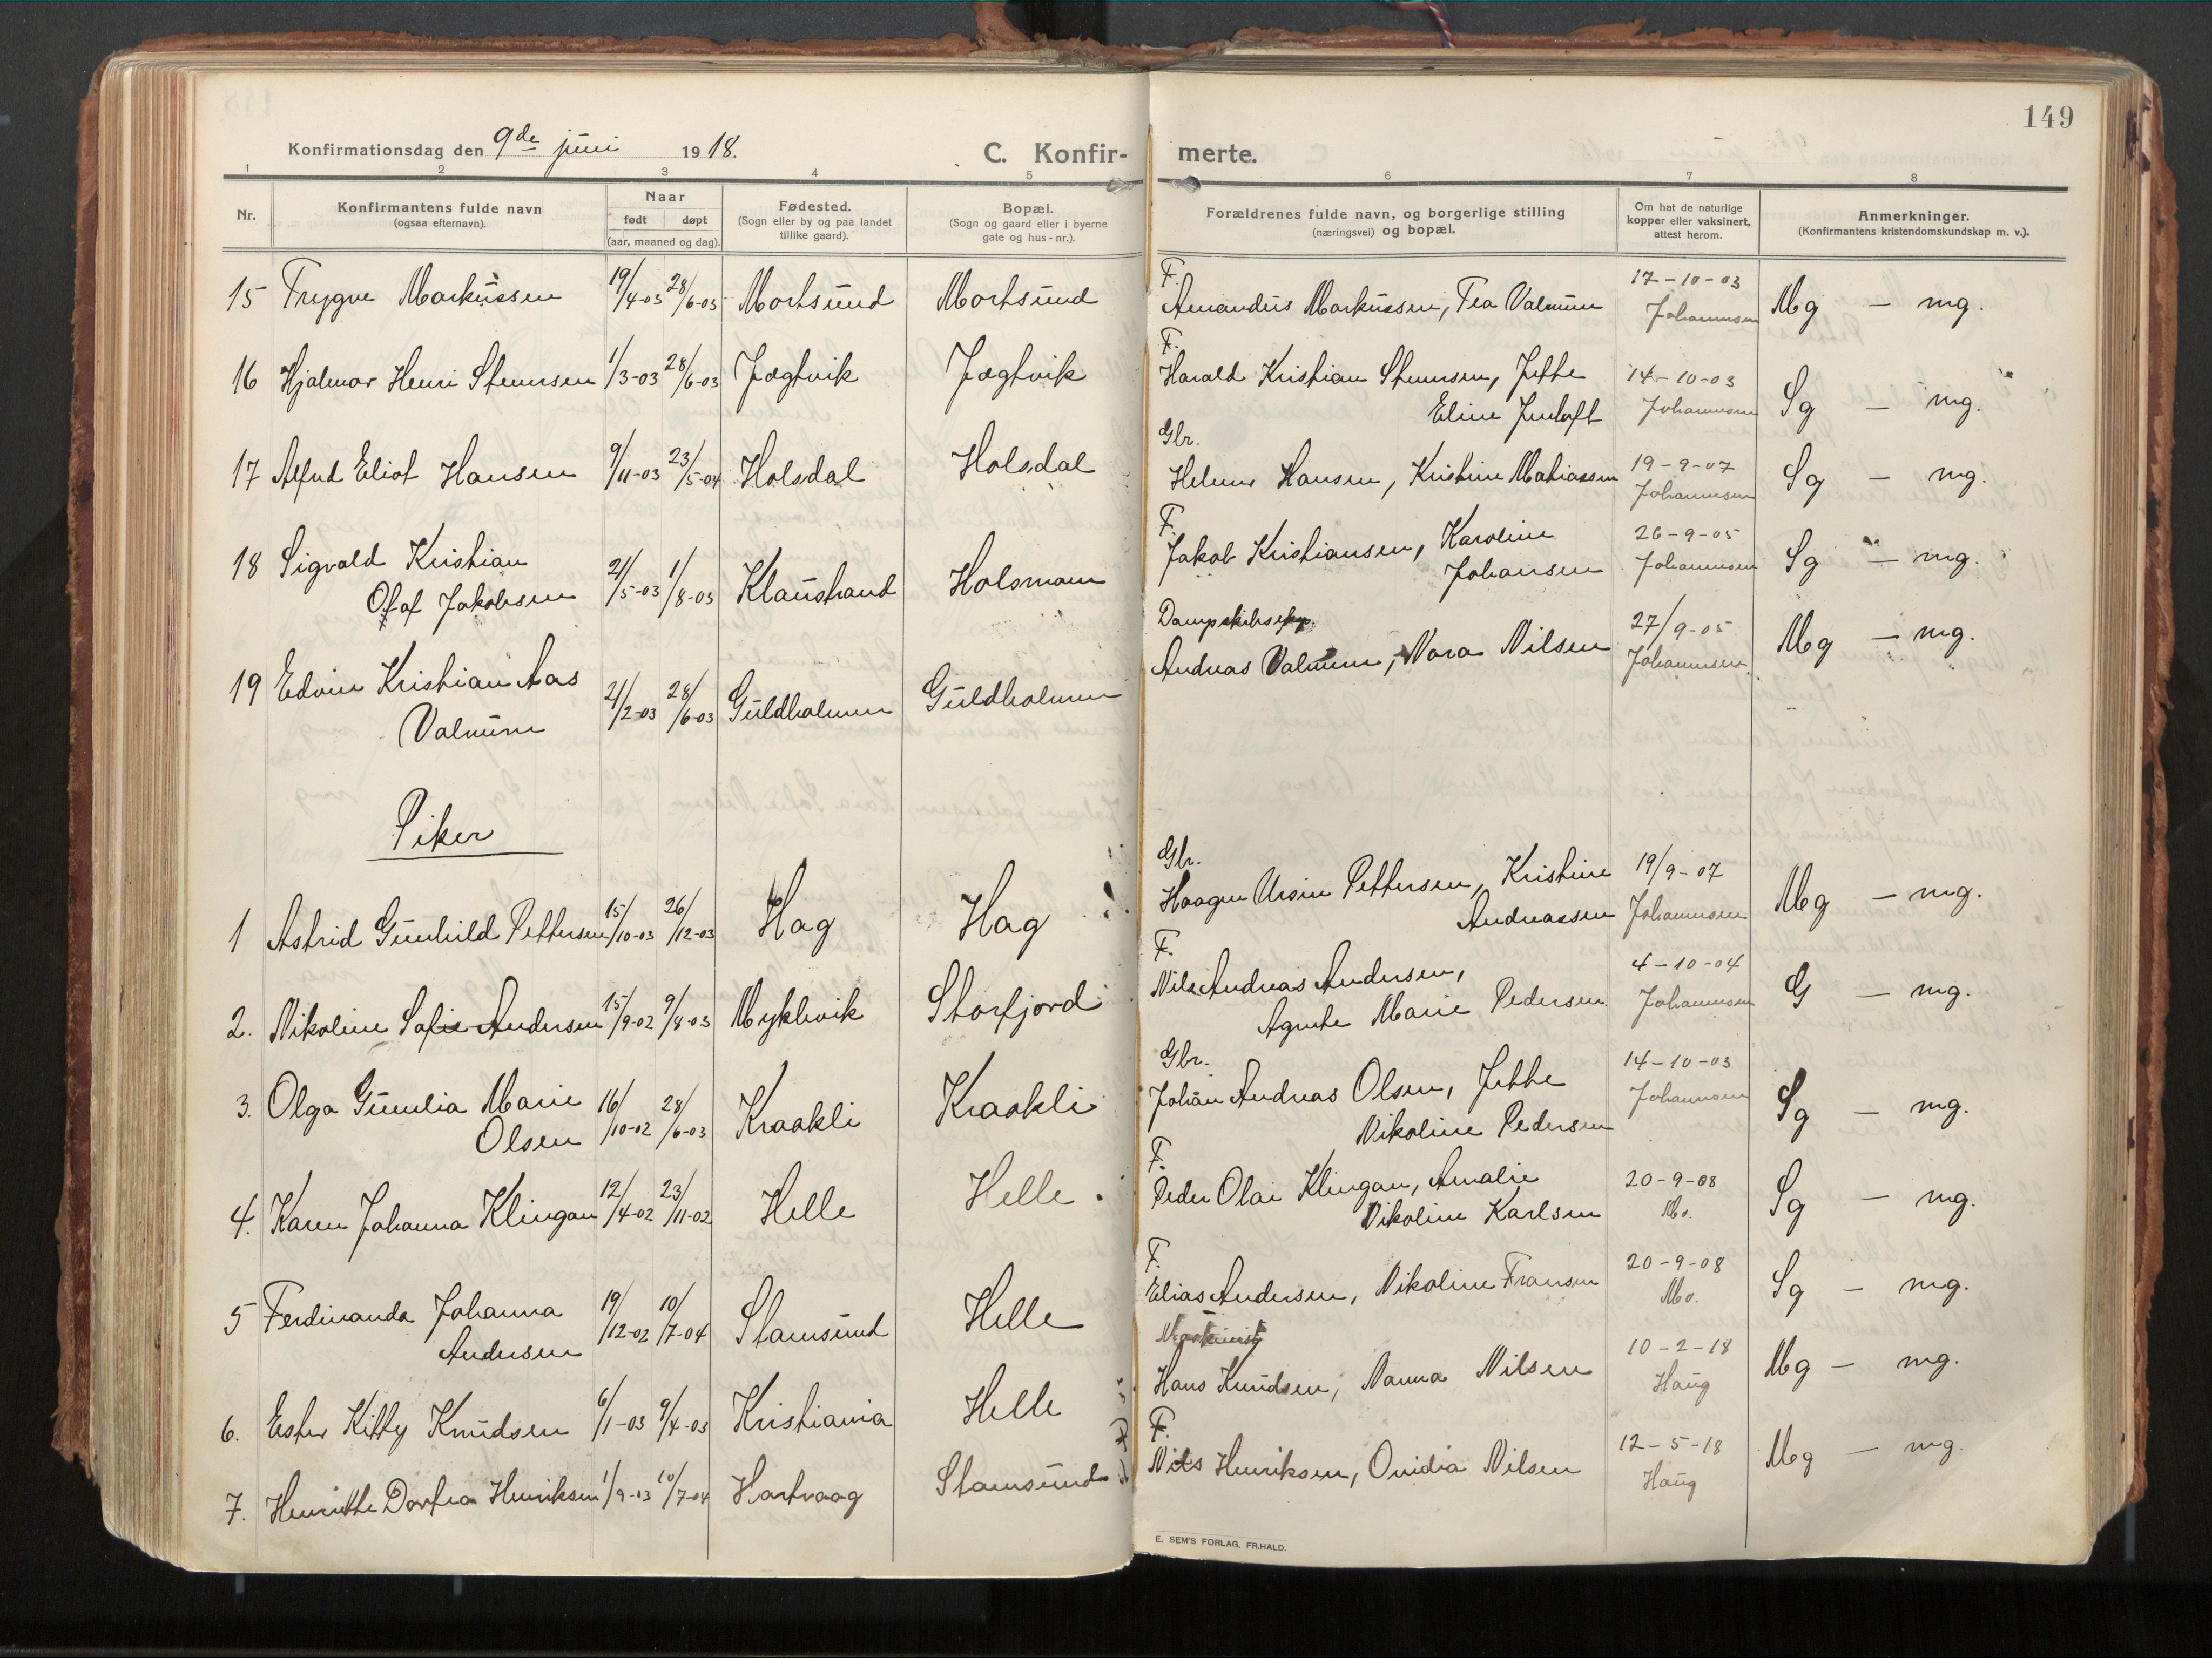 149
Konfirmationsdag den 9de juni 1918.
C. Konfir-
merte.
1 2 3 4 5 6 7 8
Nr.
Konfirmantens fulde navn
(ogsaa efternavn).
Naar
født døpt
(aar, maaned og dag).
Fødested.
(Sogn eller by og paa landet
tillike gaard).
Bopæl.
(Sogn og gaard eller i byerne
gate og hus-nr.).
Forældrenes fulde navn, og borgerlige stilling
(næringsvei) og bopæl.
Om hat de naturlige
kopper eller vaksinert,
attest herom.
Anmerkninger.
(Konfirmantens kristendomskundskap m. v.).
F. 17-10-03
15 Trygve Markussen 19/4-03 28/6-03 Mortsund Mortsund Amandus Markussen, Tea Valmum Johannsen Mg - mg.
F.
16 Hjalmar Henri Steensen 1/3-03 28/6-03 Jægtvik Jægtvik Harald Kristian Steensen, Jette 14-10-03 Sg - mg.
Eline Jentoft Johannsen
Gbr.
17 Alfred Eliot Hansen 9/11-03 23/5-04 Holsdal Holsdal Helmer Hansen, Kristine Mathiassen 19-9-07 Sg - mg.
Johannsen
F.
18 Sigvald Kristian 21/5-03 1/8-03 Klaustrand Holsmoen Jakob Kristiansen, Karoline 26-9-05 Sg - mg.
Olaf Jakobsen Johansen Johannsen
Dampskibsexp.
19 Edvin Kristian Aas 21/2-03 28/6-03 Guldholmen Guldholmen Andreas Valmum, Nora Nilsen 27/9-05 Mg - mg.
Valmum Johannsen
Piker
Gbr.
1 Astrid Gunhild Pettersen 15/10-03 26/12-03 Hag Hag Haagen Ursin Pettersen, Kristine 19/9-07 Mg - mg.
Andreassen Johannsen
F.
2. Nikoline Sofie Andersen 15/9-02 9/8-03 Myklevik Storfjord Nils Andreas Andersen, 4-10-04 G - mg.
Agnete Marie Pedersen Johannsen
Gbr.
3. Olga Gunelia Marie 16/10-02 28/6-03 Kraakli Kraakli Johan Andreas Olsen, Jette 14-10-03 Sg - mg.
Olsen Nikoline Pedersen Johannsen
F.
4. Karen Johanna Klingan 12/4-02 23/11-02 Helle Helle. Peder Olai Klingan, Amalie 20-9-08 Sg - mg.
Nikoline Karlsen Mo.
F.
5 Ferdinanda Johanna 19/12-02 10/7-04 Stamsund Helle Elias Andersen, Nikoline Fransen 20-9-08 Sg - mg.
Andersen Mo.
Maskinist
6. Ester Kitty Knudsen 6/1-03 9/4-03 Kristiania Helle Hans Knudsen, Nanna Nilsen 10-2-18 Mg - mg.
Haug
F.
7. Henriette Dortea Henriksen 1/9-03 10/7-04 Hartvaag Stamsund Nils Henriksen, Ovidia Nilsen 12-5-18 Mg - mg.
Haug
E. SEM'S FORLAG, FR.HALD.